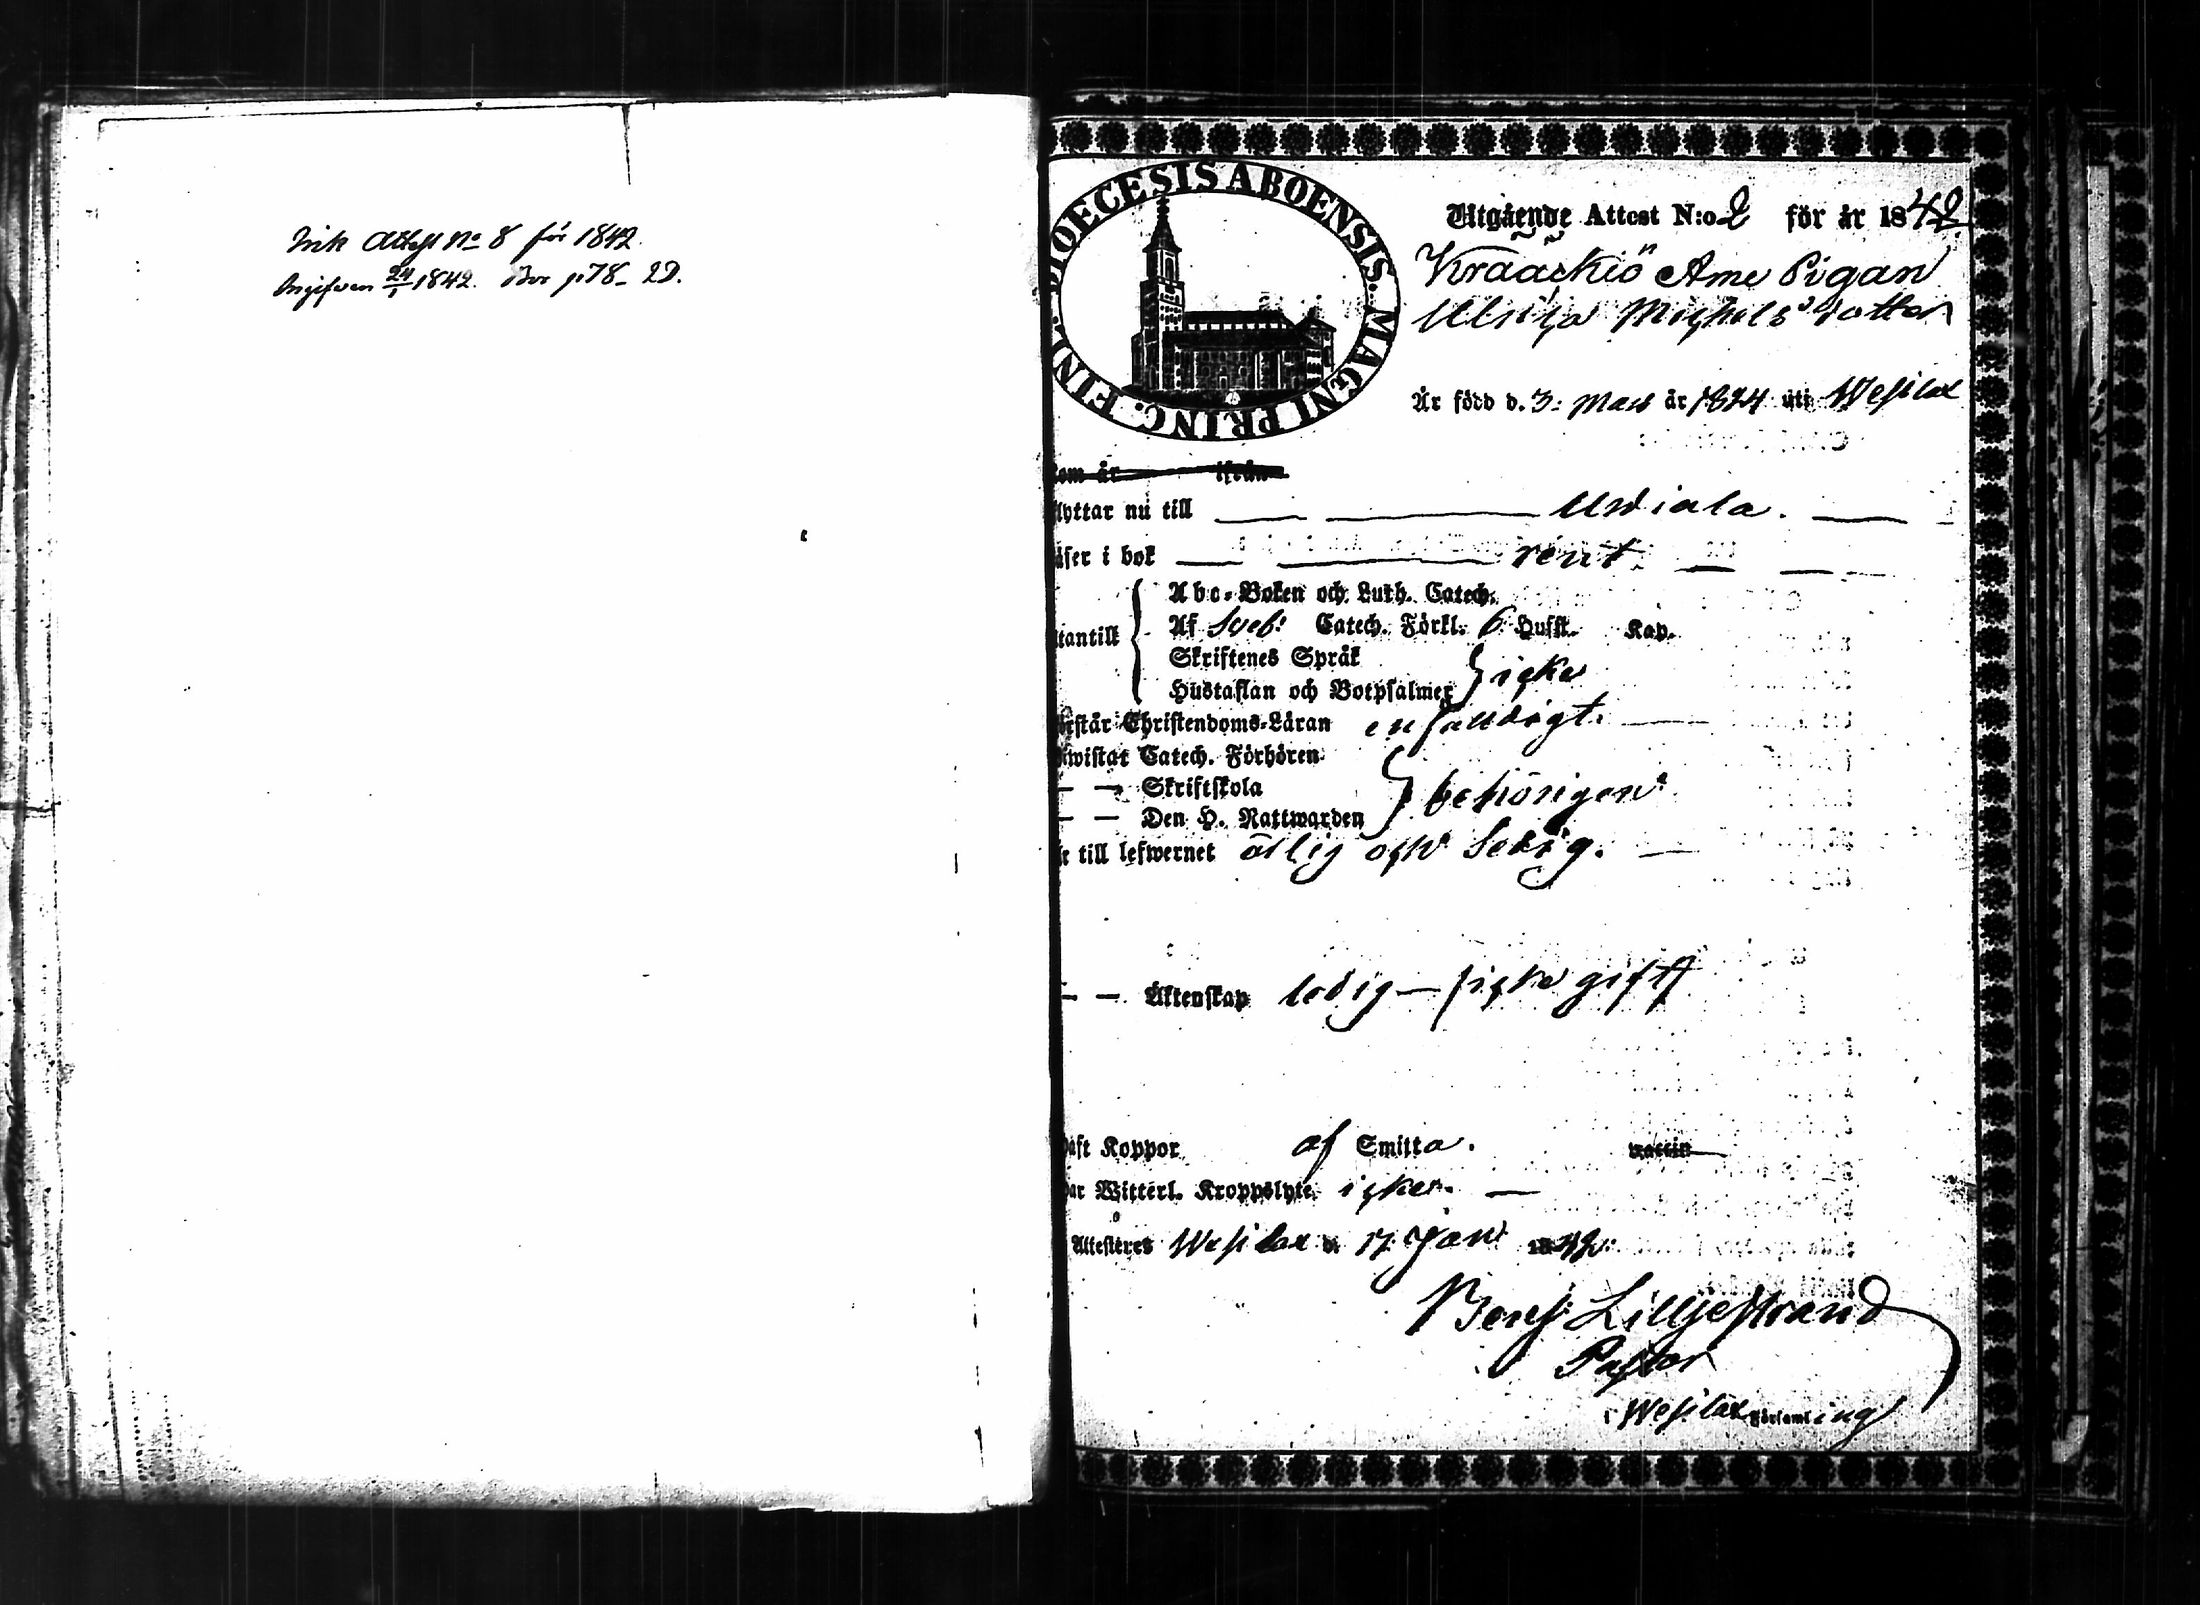 Ink Attest No 8 för 1842
Angifven 24/1 1842. Bor p. 78.
DIOECESIS ABOENSIS. MAGNI PRINC. FINL.
Utgående Attest N:o 2 för år 1842
Kraaskiö Pigan
Ulrika Michelsdotter
Är född d. 3: Mars år 1824 uti Wesilax
om är ifrån
lyttar nu till Urdiala.
äser i bok rent
Abc-Boken och Luth. Catech.
tantill Af Sveb: Catech. Förkl. 6 Hufst. Kap.
Skriftenes Språk
Hustaflan och Botpsalmer icke
rstår Christendoms-Läran enfaldigt.
wistat Catech. Förhören
— — Skriftskola behörigen
— — Den H. Nattwarden
r till lefwernet ärlig och sedig.
— — Äktenskap ledig – icke gift
aft Koppor af Smitta. vaccin
ar Witterl. Kroppslyte icke.
Attesteres Wesilax d. 17 Jan 1842:
Benj: Lilljestrand
Pastor
i Wesilax Församling